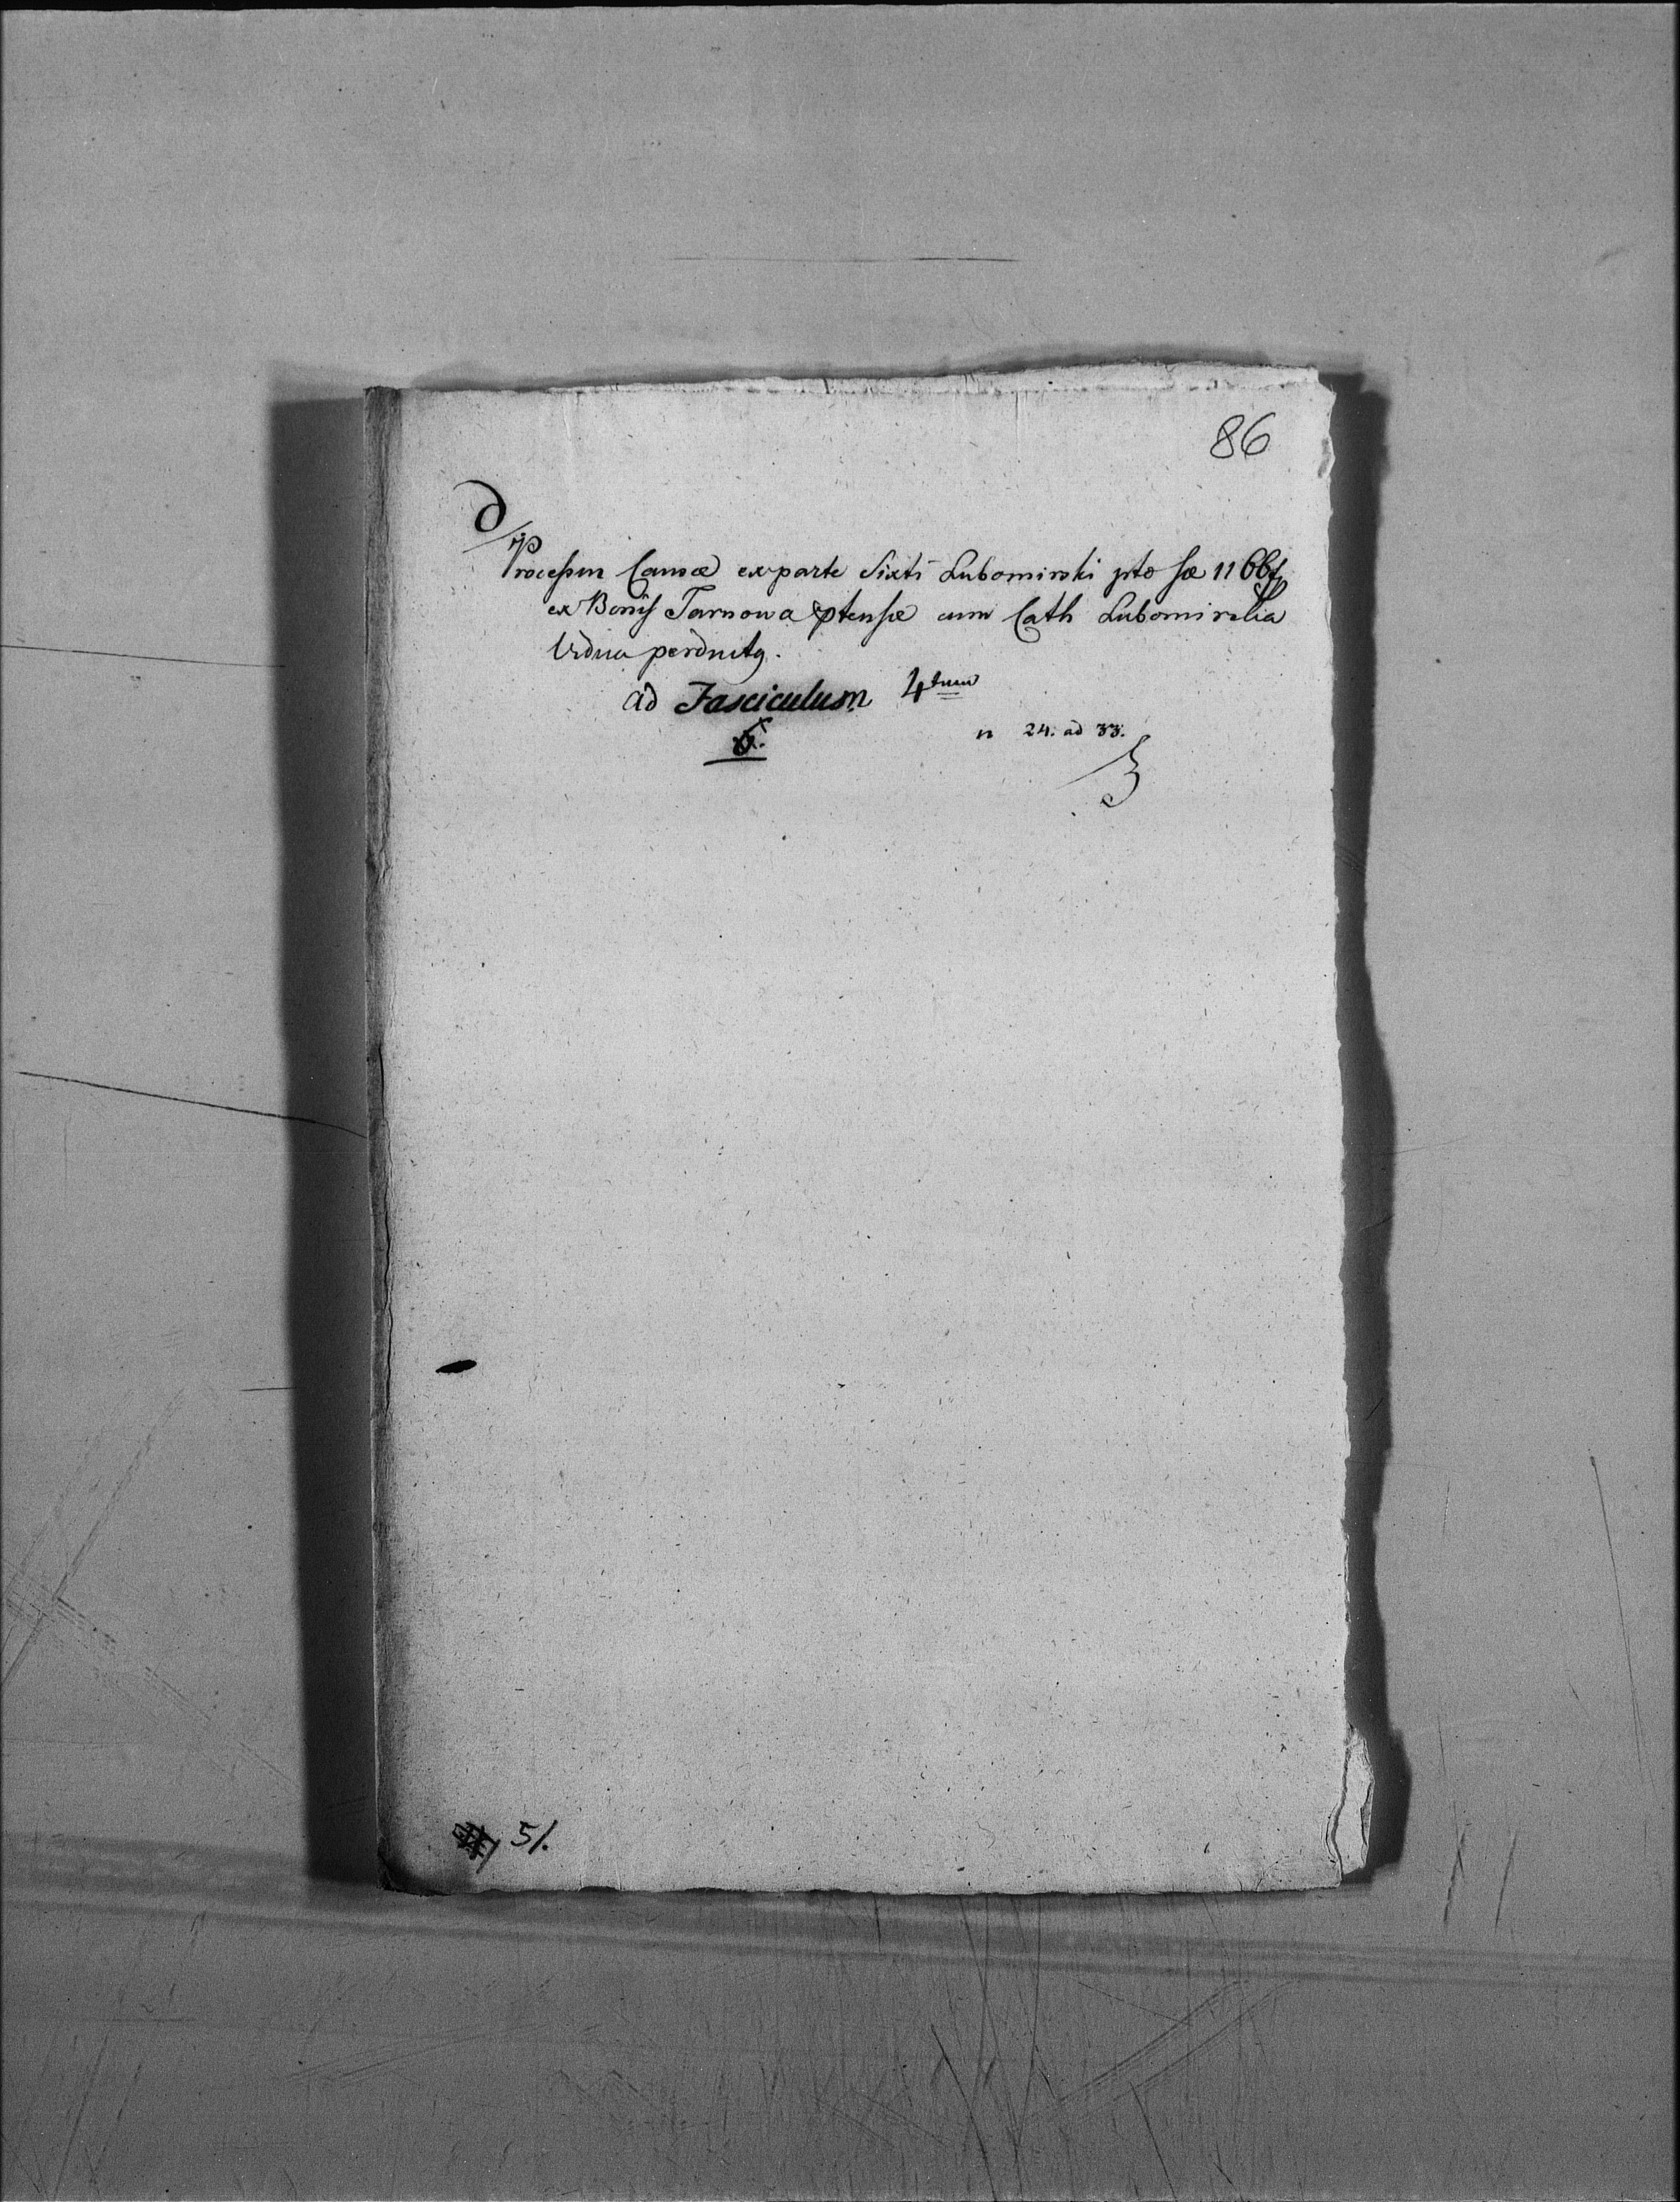 86
D
Processus Causæ ex parte Sixti Lubomirski pto sæ 11
ex Bonis Tarnowa ptensæ cum Cath Lubomirska
Vidua
ad Fasciculum 4tum
n 24. ad 33.
5/.